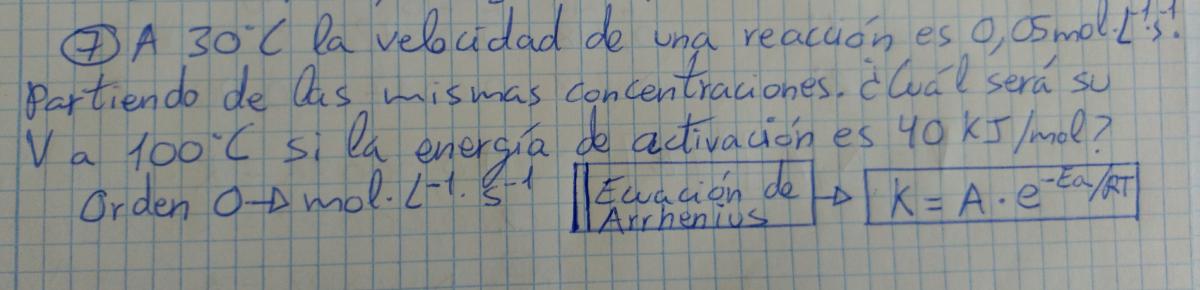 ⑦ A 30°C la velocidad de una reacción es 0,05mol·L⁻¹·s⁻¹.
Partiendo de las mismas concentraciones. ¿Cuál será su
V a 100°C si la energía de activación es 40 KJ/mol?
Orden 0→ mol·L⁻¹·s⁻¹ Ecuación de Arrhenius → K = A · e^-Ea/RT